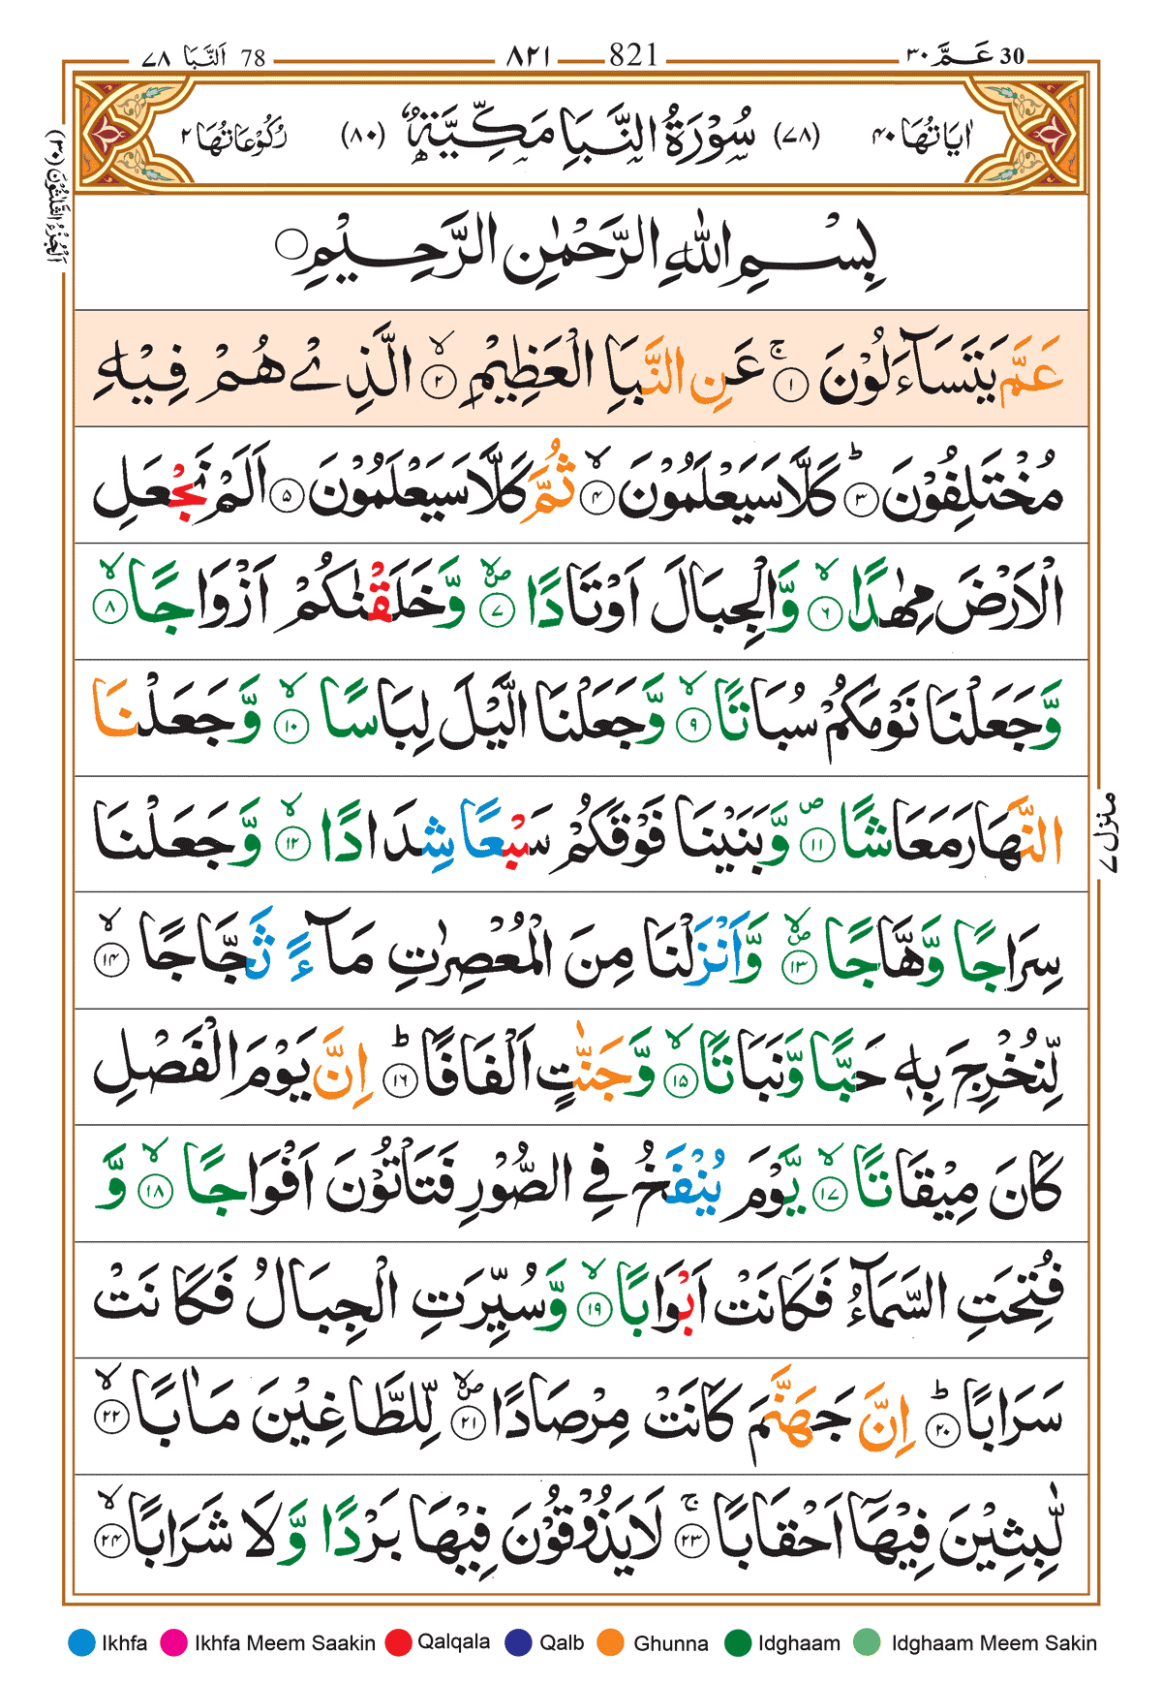 78 اَلنَّبَا ٧٨ ٨٢١ 821 30 عَمَّ ٣٠
اٰيَاتُهَا ٤٠ (٧٨) سُوْرَةُ النَّبَاِ مَكِّيَّةٌ (٨٠) رُكُوْعَاتُهَا ٢
اَلْجُزْءُ الثَّلٰثُوْنَ (٣٠)
بِسْمِ اللّٰهِ الرَّحْمٰنِ الرَّحِيْمِ
عَمَّ يَتَسَآءَلُوْنَ ۚ‏ ﴿١﴾ عَنِ النَّبَاِ الْعَظِيْمِ ۙ‏ ﴿٢﴾ الَّذِىْ هُمْ فِيْهِ
مُخْتَلِفُوْنَ ؕ‏ ﴿٣﴾ كَلَّا سَيَعْلَمُوْنَ ۙ‏ ﴿٤﴾ ثُمَّ كَلَّا سَيَعْلَمُوْنَ ﴿٥﴾ اَلَمْ نَجْعَلِ
الْاَرْضَ مِهٰدًا ۙ‏ ﴿٦﴾ وَّالْجِبَالَ اَوْتَادًا ۙ ‏ ﴿٧﴾ وَّخَلَقْنٰكُمْ اَزْوَاجًا ۙ‏ ﴿٨﴾
وَّجَعَلْنَا نَوْمَكُمْ سُبَاتًا ۙ‏ ﴿٩﴾ وَّجَعَلْنَا الَّيْلَ لِبَاسًا ۙ‏ ﴿١٠﴾ وَّجَعَلْنَا
النَّهَارَ مَعَاشًا ‏ص ﴿١١﴾ وَّبَنَيْنَا فَوْقَكُمْ سَبْعًا شِدَادًا ۙ‏ ﴿١٢﴾ وَّجَعَلْنَا
سِرَاجًا وَّهَّاجًا ۙ ‏ ﴿١٣﴾ وَّاَنْزَلْنَا مِنَ الْمُعْصِرٰتِ مَآءً ثَجَّاجًا ۙ‏ ﴿١٤﴾
لِّنُخْرِجَ بِهٖ حَبًّا وَّنَبَاتًا ۙ‏ ﴿١٥﴾ وَّجَنّٰتٍ اَلْفَافًا ؕ‏ ﴿١٦﴾ اِنَّ يَوْمَ الْفَصْلِ
كَانَ مِيْقَاتًا ۙ‏ ﴿١٧﴾ يَّوْمَ يُنْفَخُ فِى الصُّوْرِ فَتَاْتُوْنَ اَفْوَاجًا ۙ‏ ﴿١٨﴾ وَّ
فُتِحَتِ السَّمَآءُ فَكَانَتْ اَبْوَابًا ۙ‏ ﴿١٩﴾ وَّسُيِّرَتِ الْجِبَالُ فَكَانَتْ
سَرَابًا ؕ‏ ﴿٢٠﴾ اِنَّ جَهَنَّمَ كَانَتْ مِرْصَادًا ۙ ‏ ﴿٢١﴾ لِّلطَّاغِيْنَ مَاٰبًا ۙ‏ ﴿٢٢﴾
لّٰبِثِيْنَ فِيْهَاۤ اَحْقَابًا ۚ‏ ﴿٢٣﴾ لَا يَذُوْقُوْنَ فِيْهَا بَرْدًا وَّلَا شَرَابًا ۙ‏ ﴿٢٤﴾
منزل ٧
Ikhfa Ikhfa Meem Saakin Qalqala Qalb Ghunna Idghaam Idghaam Meem Sakin